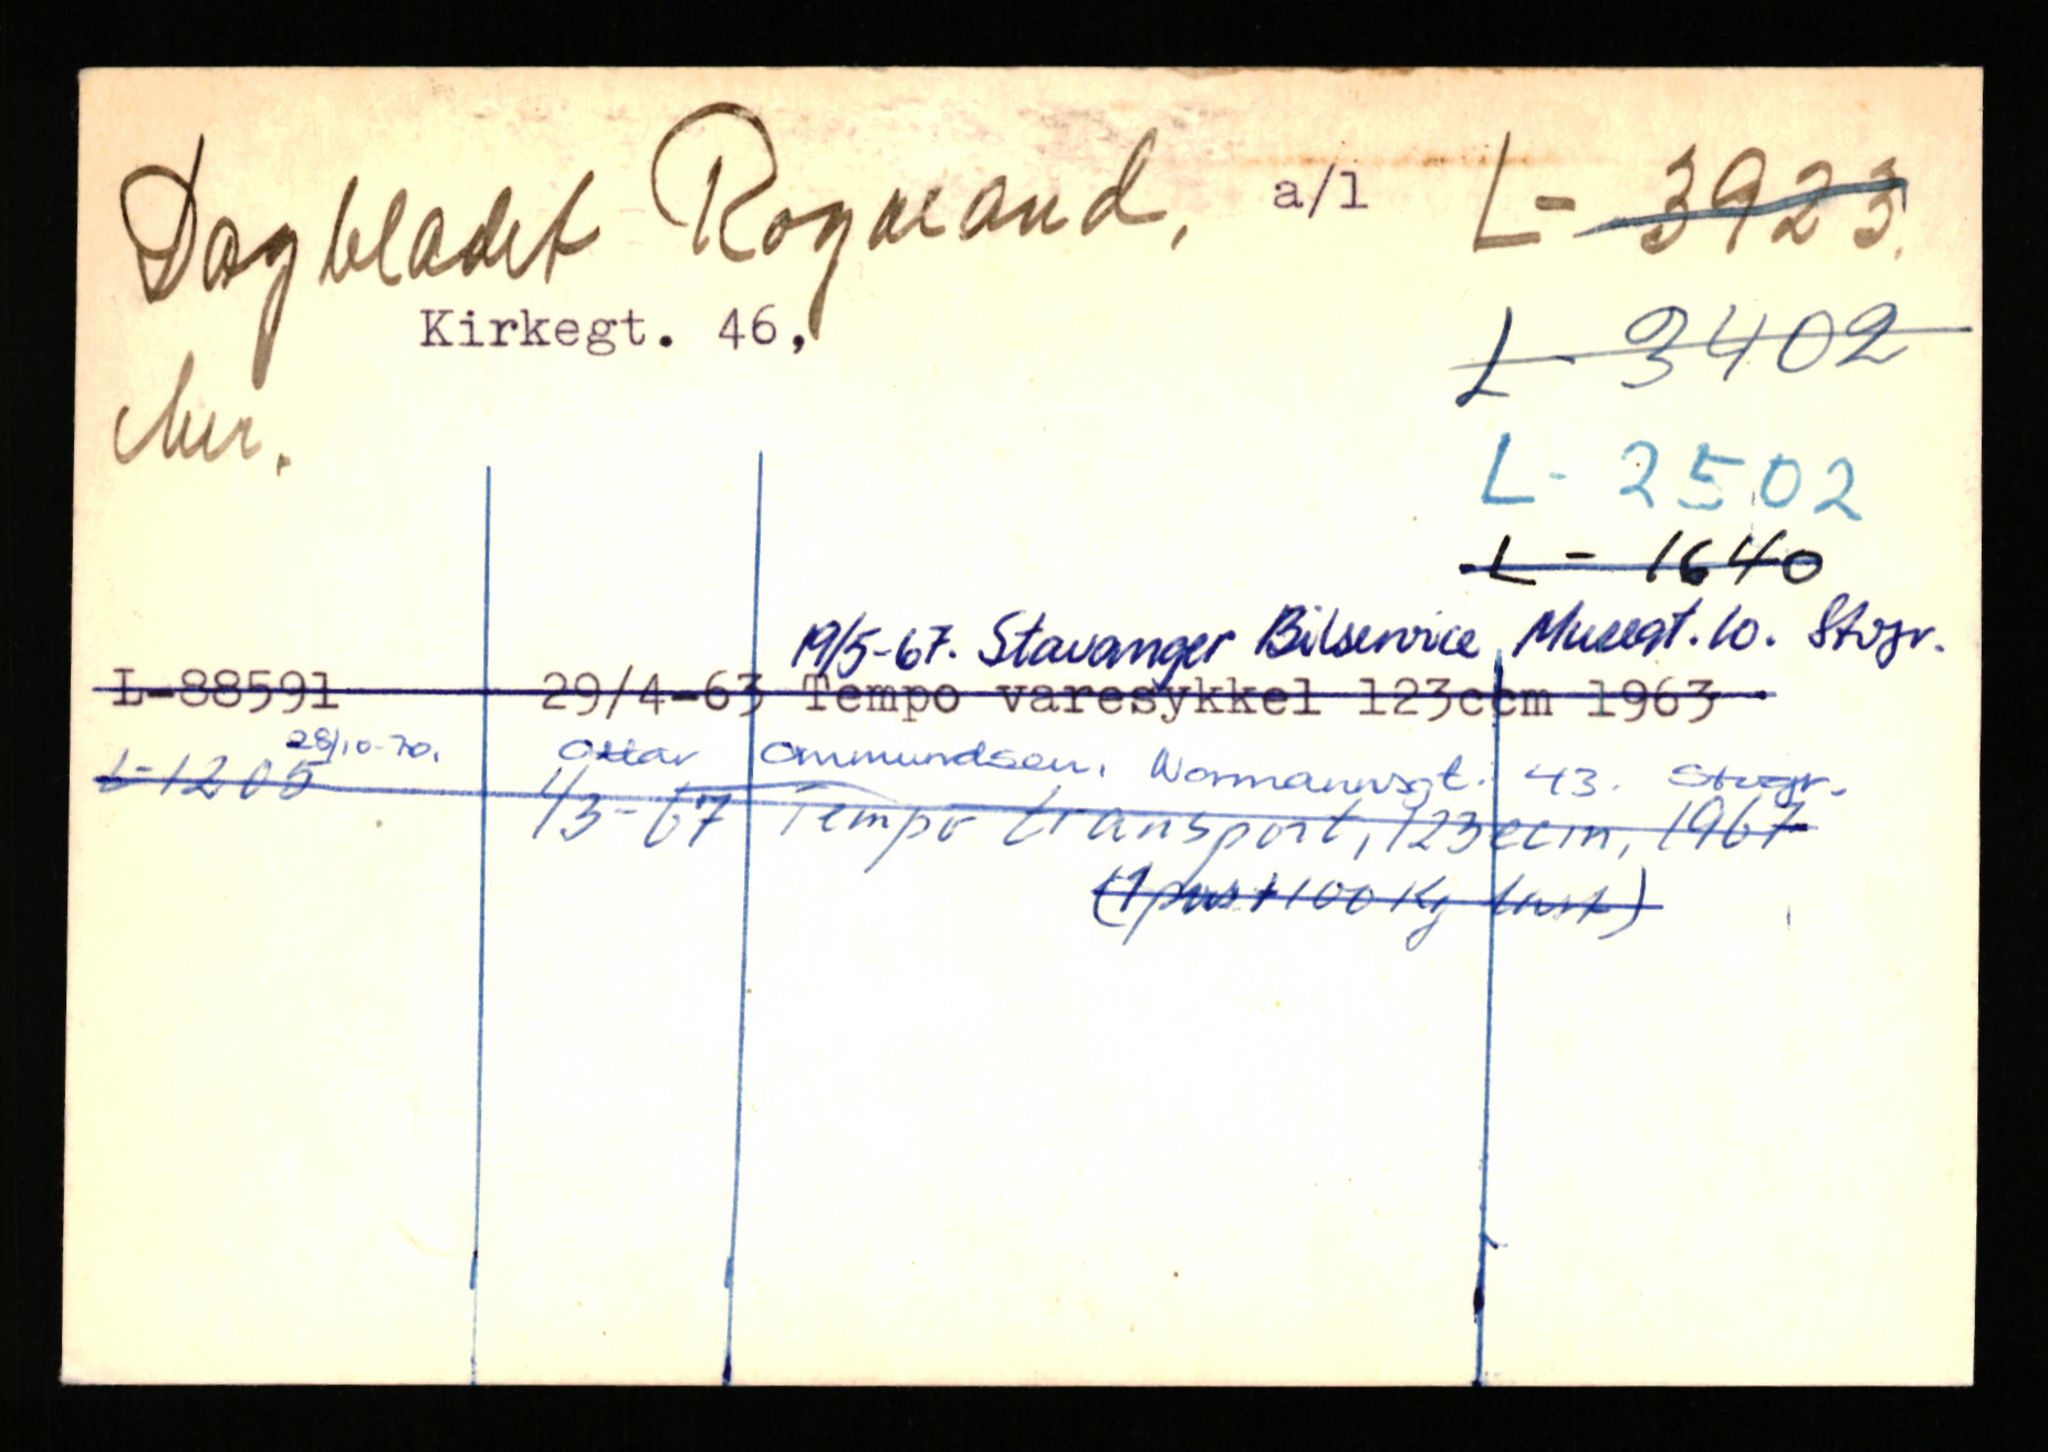 Dagbladet Rogaland, a/l L- 3923.
Kirkegt. 46,
L- 3402
her.
L- 2502
L - 1640
19/5-67. Stavanger Bilservice, Musegt. 10. Stvgr.
L-88591 29/4-63 Tempo varesykkel 123ccm 1963
28/10-70. Ottar Ommundsen, Normannsgt. 43. Stvgr.
L-1205 4/3-67 Tempo transport, 123ccm, 1967
(1 pas + 100 Kg last)